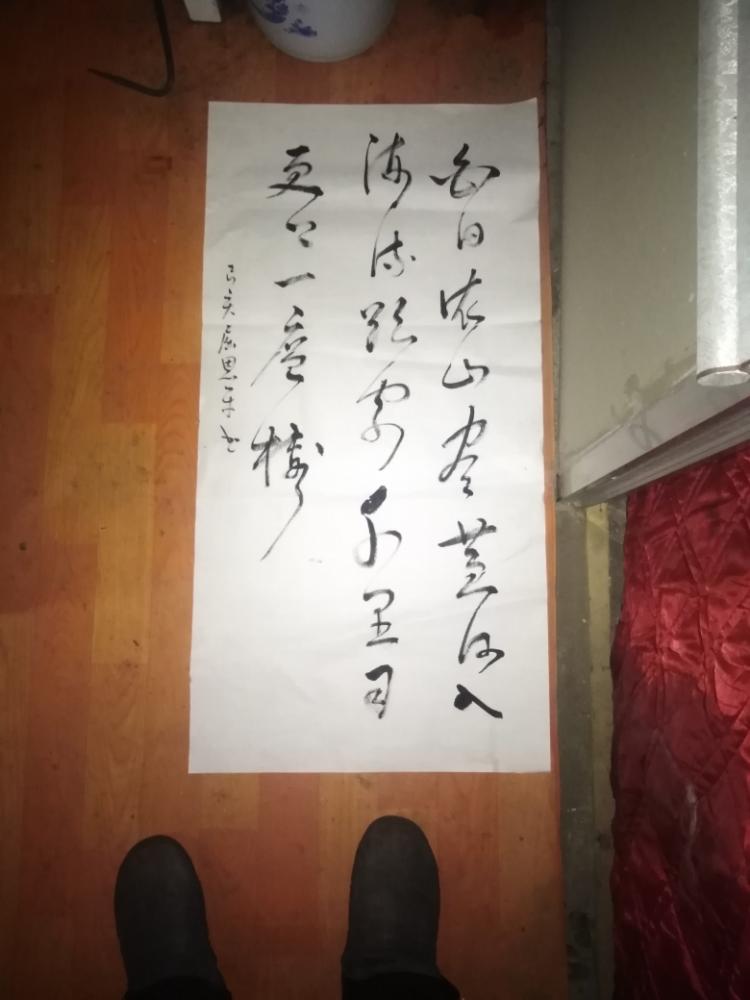 白日依山尽黄河入
海流欲穷千里目
更上一层楼